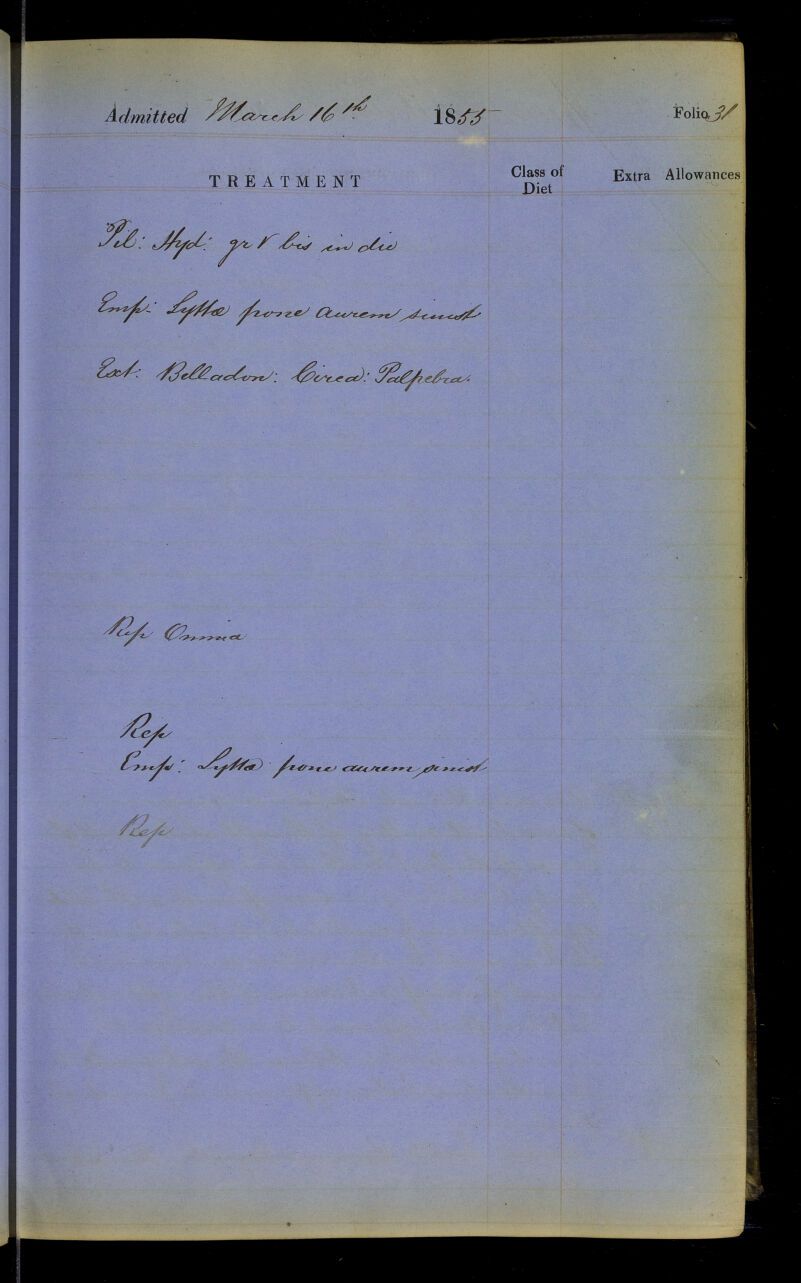 Admitted March 16th 1855 Folio 31
TREATMENT Class of Diet Extra Allowances
Pil: Hyd: gr V bis in die
Emp: Lyttæ pone aurem sinist
Ext: Belladon: Circa: Palpebra.
Rep Omnia
Rep
Emp: Lyttæ pone aurem sinist
Rep